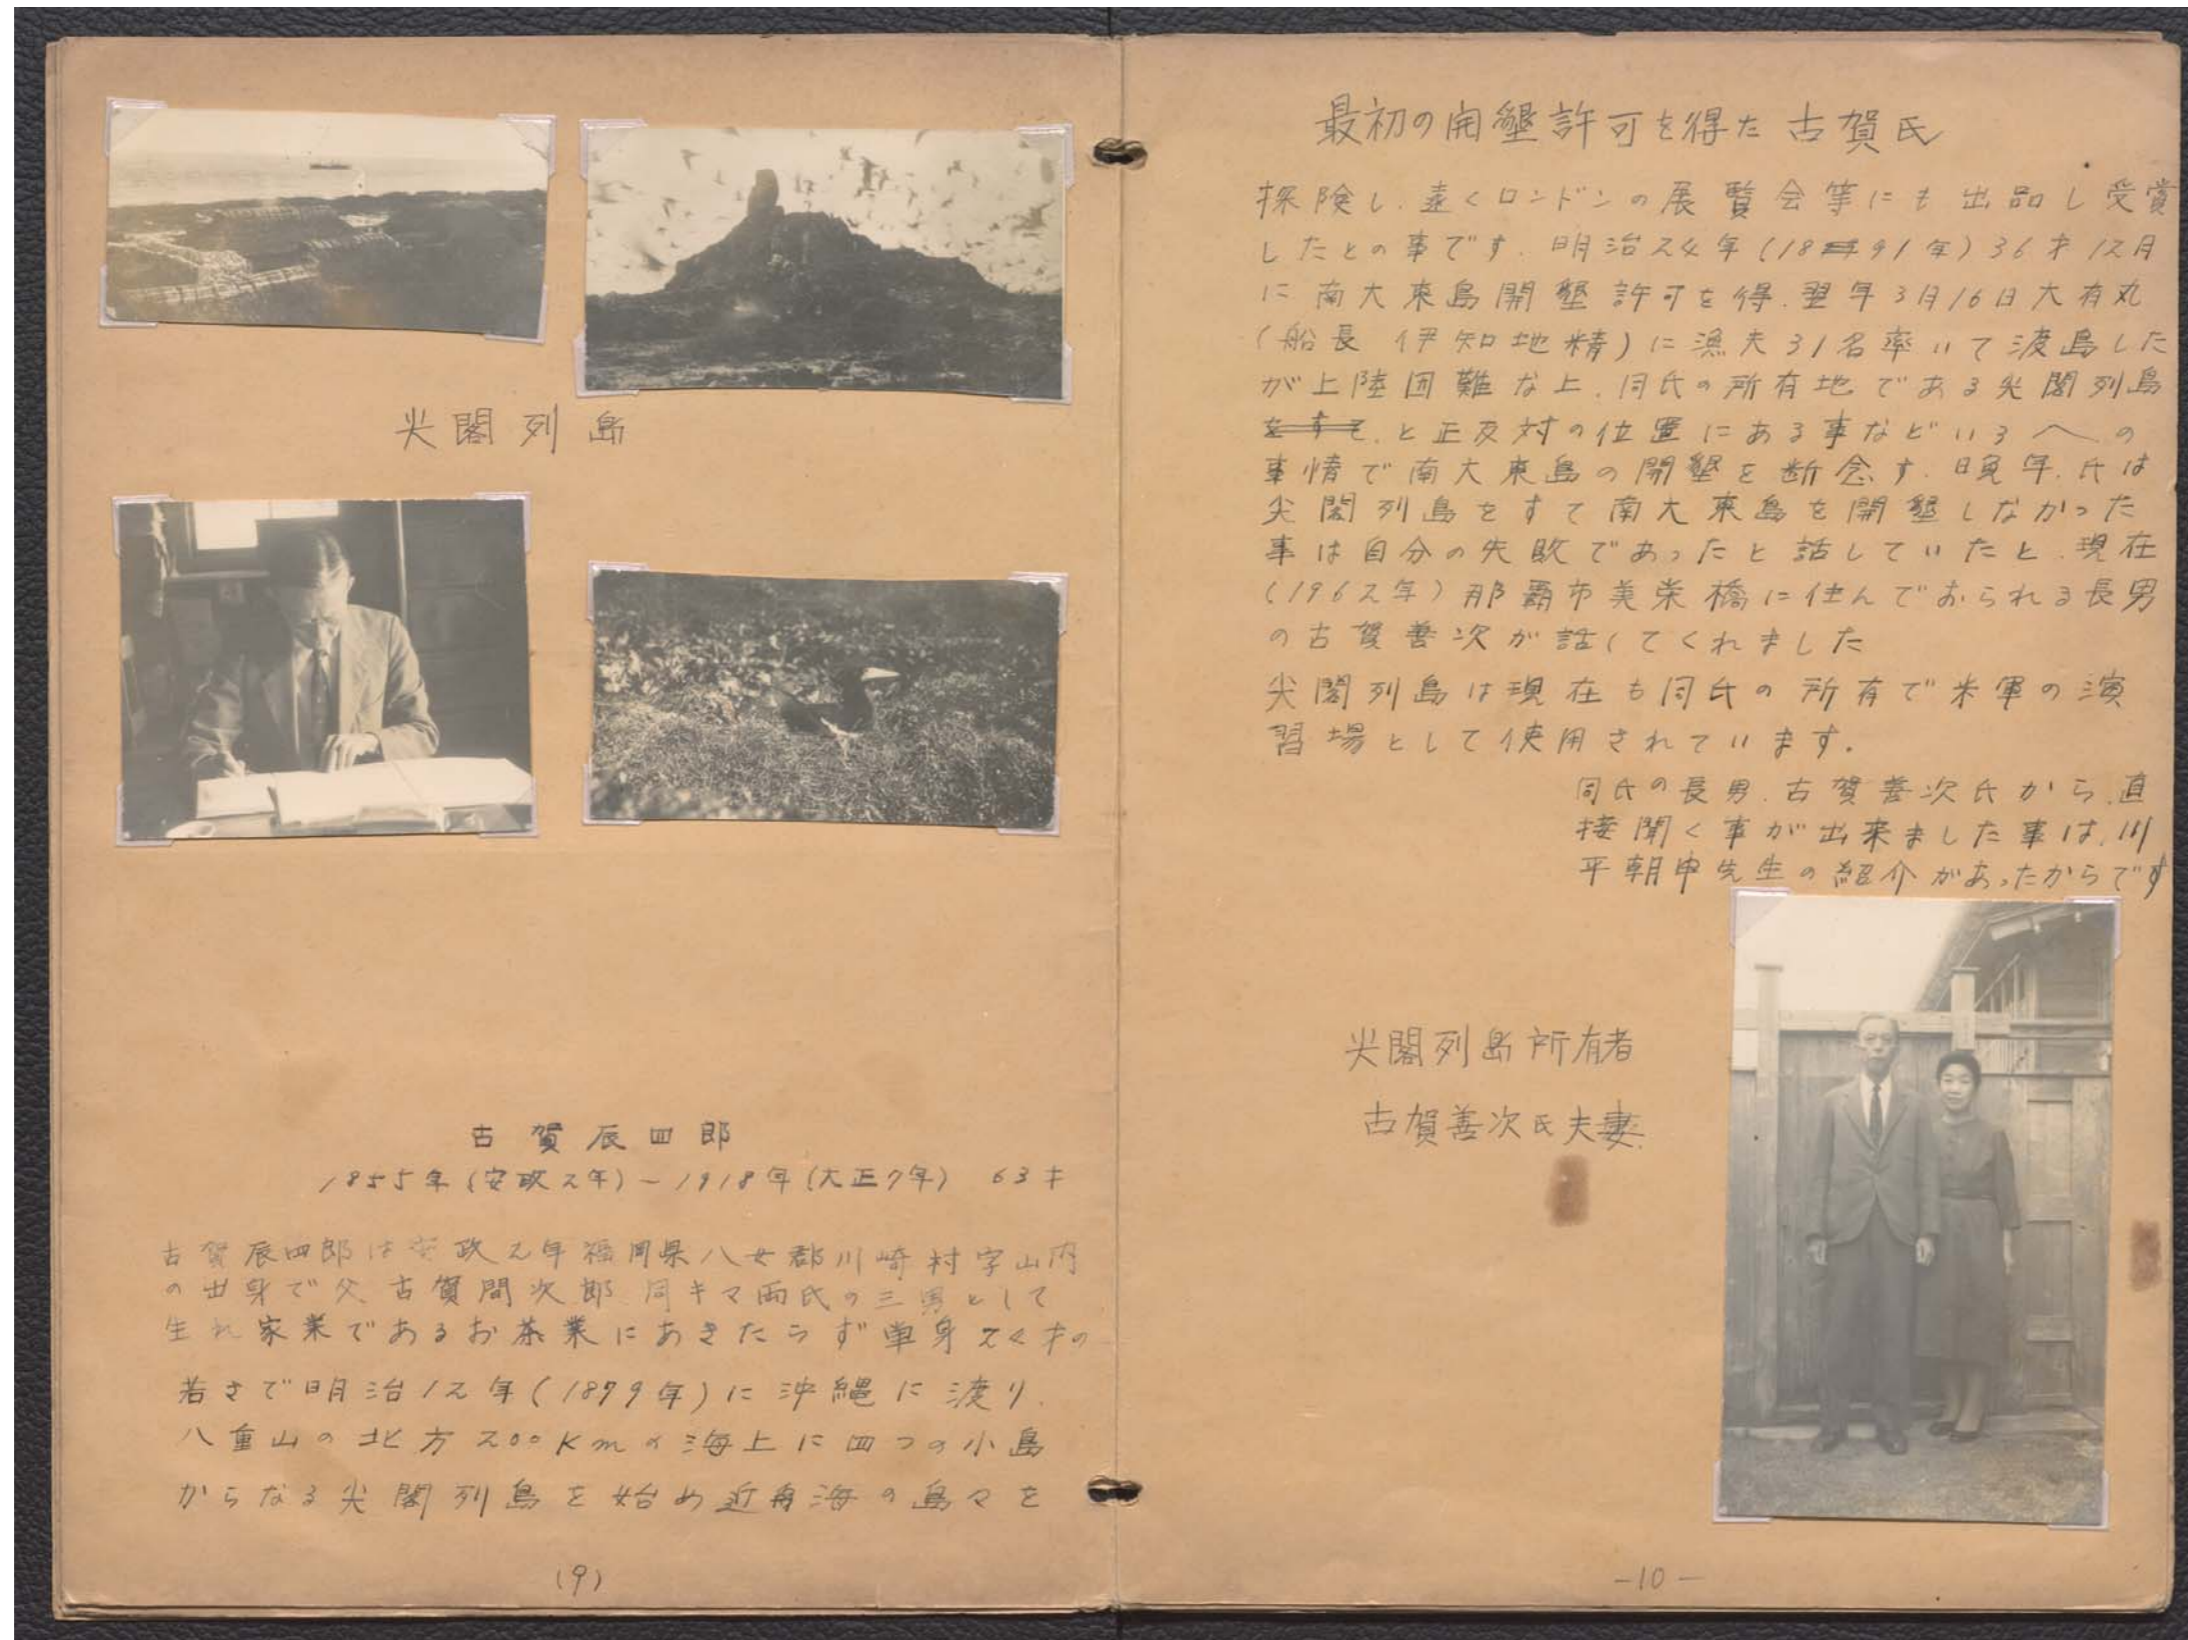 尖閣列島
古賀辰四郎
1855年(安政2年)~1918年(大正7年) 63才
古賀辰四郎は安政2年福岡県八女郡川崎村字山内
の出身で父古賀間次郎 同キマ両氏の三男として
生れ家業であるお茶業にあきたらず単身24才の
若さで明治12年(1879年)に沖縄に渡り、
八重山の北方200Kmの海上に四つの小島
からなる尖閣列島を始め近海の島々を
(9)
最初の開墾許可を得た古賀氏
探険し、遠くロンドンの展覧会等にも出品し受賞
したとの事です。明治24年(1891年)36才12月
に南大東島開墾許可を得、翌年3月16日大有丸
(船長 伊知地精)に漁夫31名率いて渡島した
が上陸困難な上、同氏の所有地である尖閣列島
をすて、と正反対の位置にある事などいろ〱の
事情で南大東島の開墾を断念す。晩年、氏は
尖閣列島をすて南大東島を開墾しなかった
事は自分の失敗であったと話していたと、現在
(1962年)那覇市美栄橋に住んでおられる長男
の古賀善次が話してくれました
尖閣列島は現在も同氏の所有で米軍の演
習場として使用されています。
同氏の長男、古賀善次氏から、直
接聞く事が出来ました事は、川
平朝申先生の紹介があったからです
尖閣列島所有者
古賀善次氏夫妻
-10-